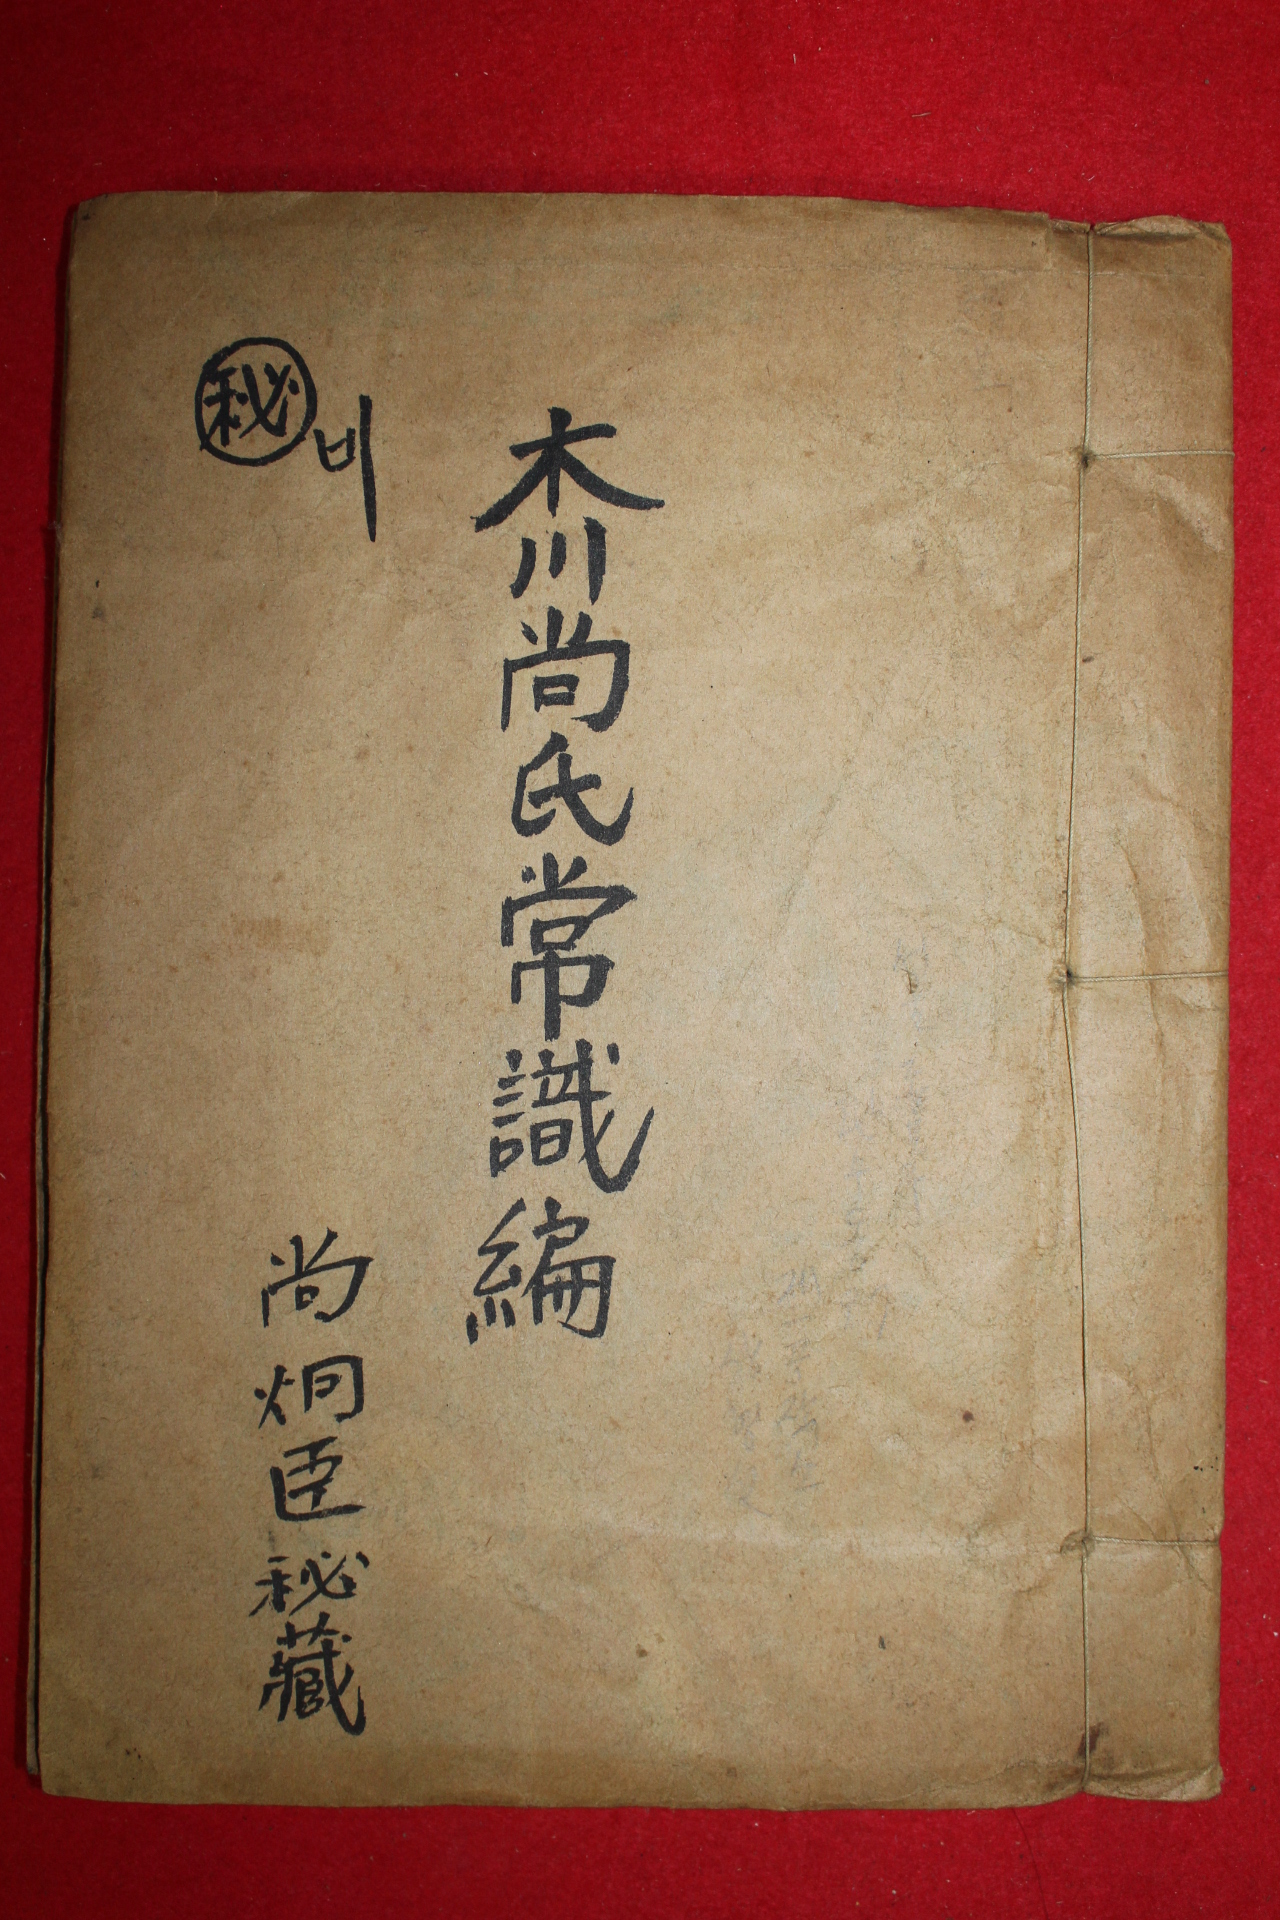 木川尚氏常識編
秘비
尚炯臣秘藏